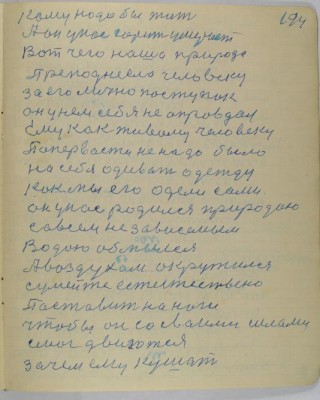 194
Кому надо бы жит
А он у нас сорит умирает
Вот чего наша природа
Преподнесло человеку
за его лично поступок
он у нем себя не оправдал
Ему как живому человеку
Попервасти не надо было
на себя одиват одежду
Как мы его одели сами
он у нас родился природаю
савсем независемым
Водою обмылся
А воздухам окружился
сумейте естистьвено
Паставит на ноги
чтобы он со сваими силами
смог двигатся
Зачем ему кушат